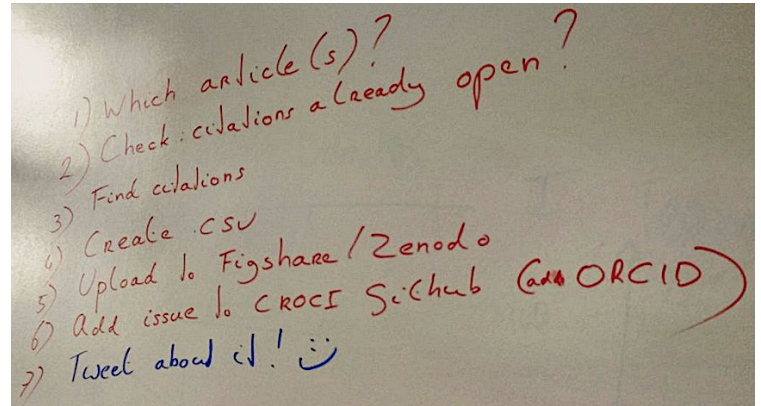 1) Which article(s)?
2) Check: citations already open?
3) Find citations
4) Create .CSV
5) Upload to Figshare/Zenodo
6) Add issue to CROCI GitHub (add ORCID)
7) Tweet about it! :)